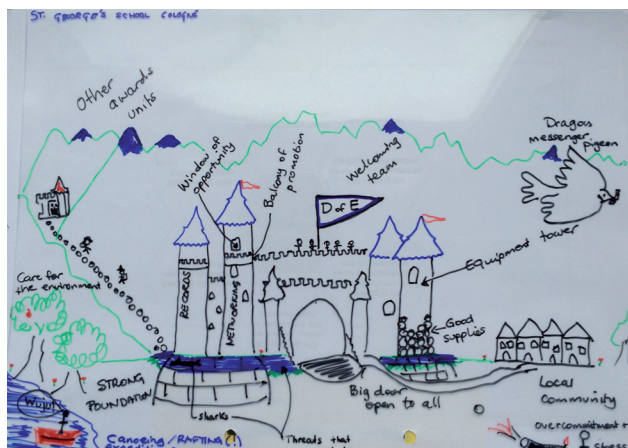 ST. GEORGE'S SCHOOL COLOGNE
Other
awards
units
Window of
opportunity
Balcony of
promotion
Welcoming
team
Dragon
messenger
pigeon
D of E
Equipment tower
Care for
the environment
RECORDS
NETWORKING
Good
supplies
STRONG
FOUNDATION
sharks
Big door
open to all
Local
Community
Canoeing/RAFTING(!)
Threads that
overcommitment +